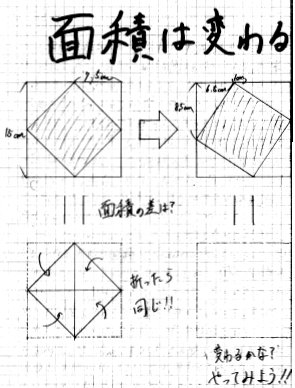 面積は変わる
7.5cm
15cm
6.5cm
8.5cm
面積の差は?
折ったら
同じ!!
変わるかな?
やってみよう!!